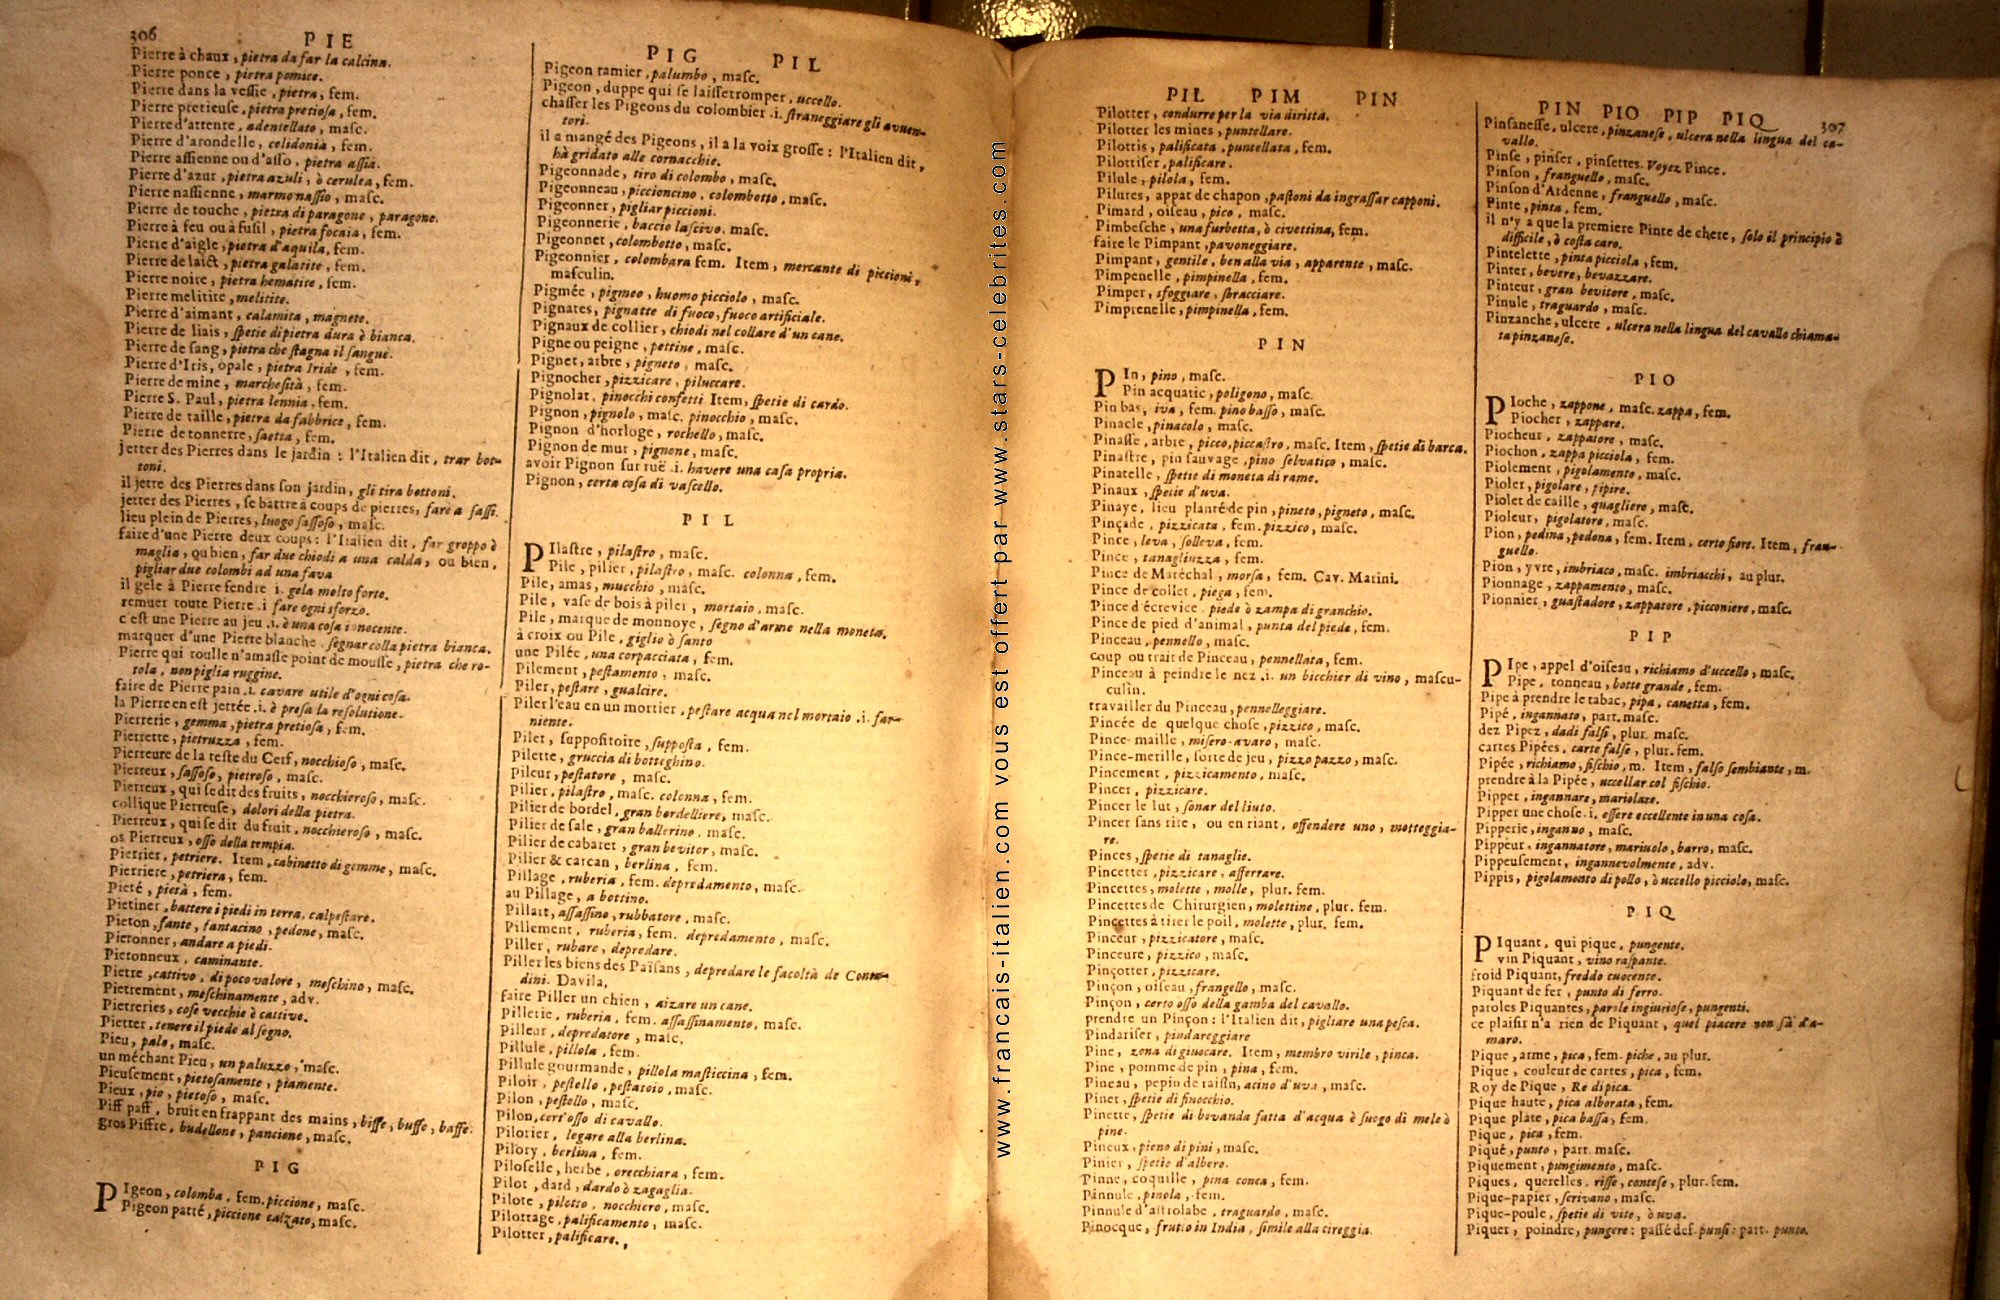 306
PIE
Pierre à chaux, pietra da far la calcina.
Pierre ponce, pietra pomice.
Pierre dans la vessie, pietra, fem.
Pierre pretieuse, pietra pretiosa, fem.
Pierre d'attente, adentellato, masc.
Pierre d'arondelle, celidonia, fem.
Pierre assienne ou d'asso, pietra assia.
Pierre d'azur, pietra azuli, ò cerulea, fem.
Pierre nassienne, marmo nassio, masc.
Pierre de touche, pietra di paragone, paragone.
Pierre à feu ou à fusil, pietra focaia, fem.
Pierre d'aigle, pietra d'aquila, fem.
Pierre de laict, pietra galatite, fem.
Pierre noire, pietra hematite, fem.
Pierre melitite, melitite.
Pierre d'aimant, calamita, magnete.
Pierre de liais, spetie di pietra dura è bianca.
Pierre de sang, pietra che stagna il sangue.
Pierre d'Iris, opale, pietra Iride, fem.
Pierre de mine, marchesità, fem.
Pierre S. Paul, pietra lennia, fem.
Pierre de taille, pietra da fabbrice, fem.
Pierre de tonnerre, saetta, fem.
jetter des Pierres dans le jardin : l'Italien dit, trar bot-
toni.
il jette des Pierres dans son jardin, gli tira bottoni.
jetter des Pierres, se battre à coups de pierres, fare a sassi.
lieu plein de Pierres, luogo sassoso, masc.
faire d'une Pierre deux coups : l'Italien dit, far groppo è
maglia, ou bien, far due chiodi a una calda, ou bien,
pigliar due colombi ad una fava
il gele à Pierre fendre .i. gela molto forte.
remuer toute Pierre .i fare ogni sforzo.
c'est une Pierre au jeu .i. è una cosa innocente.
marquer d'une Pierre blanche, segnar colla pietra bianca.
Pierre qui roulle n'amasse point de mousse, pietra che ro-
tola, non piglia ruggine.
faire de Pierre pain .i. cavare utile d'ogni cosa.
la Pierre en est jettée .i. è presa la resolutione.
Pierrerie, gemma, pietra pretiosa, fem.
Pierrette, pietruzza, fem.
Pierreure de la teste du Cerf, nocchioso, masc.
Pierreux, sassoso, pietroso, masc.
Pierreux, qui se dit des fruits, nocchieroso, masc.
collique Pierreuse, dolori della pietra.
Pierreux, qui se dit du fruit, nocchieroso, masc.
os Pierreux, osso della tempia.
Pierrier, petriere. Item, cabinetto di gemme, masc.
Pierriere, petriera, fem.
Pieté, pietà, fem.
Pietiner, battere i piedi in terra, calpestare.
Pieton, fante, fantacino, pedone, masc.
Pietonner, andare a piedi.
Pietonneux, caminante.
Pietre, cattivo, di poco valore, meschino, masc.
Pietrement, meschinamente, adv.
Pietreries, cose vecchie è cattive.
Pietter, tenere il piede al segno.
Pieu, palo, masc.
un méchant Pieu, un paluzzo, masc.
Pieusement, pietosamente, piamente.
Pieux, pio, pietoso, masc.
Piff paff, bruit en frappant des mains, biffe, buffe, baffe.
gros Piffre, budellone, pancione, masc.
PIG
PIgeon, colomba, fem. piccione, masc.
Pigeon patté, piccione calzato, masc.
PIG PIL
Pigeon ramier, palumbo, masc.
Pigeon, duppe qui se laisse tromper, uccello.
chasser les Pigeons du colombier .i. straneggiare gli avven-
tori.
il a mangé des Pigeons, il a la voix grosse : l'Italien dit,
hà gridato alle cornacchie.
Pigeonnade, tiro di colombo, masc.
Pigeonneau, piccioncino, colombotto, masc.
Pigeonner, pigliar piccioni.
Pigeonnerie, baccio lascivo, masc.
Pigeonnet, colombotto, masc.
Pigeonnier, colombara fem. Item, mercante di piccioni,
masculin.
Pigmée, pigmeo, huomo picciolo, masc.
Pignates, pignatte di fuoco, fuoco artificiale.
Pignaux de collier, chiodi nel collare d'un cane.
Pigne ou peigne, pettine, masc.
Pignet, arbre, pigneto, masc.
Pignocher, pizzicare, piluccare.
Pignolat, pinocchi confetti Item, spetie di cardo.
Pignon, pignolo, masc. pinocchio, masc.
Pignon d'horloge, rochello, masc.
Pignon de mur, pignone, masc.
avoir Pignon sur ruë .i. havere una casa propria.
Pignon, certa cosa di vascello.
PIL
PIlastre, pilastro, masc.
Pile, pilier, pilastro, masc. colonna, fem.
Pile, amas, mucchio, masc.
Pile, vase de bois à piler, mortaio, masc.
Pile, marque de monnoye, segno d'arme nella moneta.
à croix ou Pile, giglio ò santo
une Pilée, una corpacciata, fem.
Pilement, pestamento, masc.
Piler, pestare, gualcire.
Piler l'eau en un mortier, pestare acqua nel mortaio .i. far-
niente.
Pilet, suppositoire, supposta, fem.
Pilette, gruccia di botteghino.
Pileur, pestatore, masc.
Pilier, pilastro, masc. colonna, fem.
Pilier de bordel, gran bordelliere, masc.
Pilier de sale, gran ballerino, masc.
Pilier de cabaret, gran bevitor, masc.
Pilier & carcan, berlina, fem.
Pillage, ruberia, fem. depredamento, masc.
au Pillage, a bottino.
Pillart, assassino, rubbatore, masc.
Pillement, ruberia, fem. depredamento, masc.
Piller, rubare, depredare.
Piller les biens des Païsans, depredare le facoltà de Conta-
dini. Davila.
faire Piller un chien, aizare un cane.
Pillerie, ruberia, fem. assassinamento, masc.
Pilleur, depredatore, masc.
Pillule, pillola, fem.
Pillule gourmande, pillola masticcina, fem.
Piloir, pestello, pestatoio, masc.
Pilon, pestello, masc.
Pilon, cert'osso di cavallo.
Pilorier, legare alla berlina.
Pilory, berlina, fem.
Piloselle, herbe, orecchiara, fem.
Pilot, dard, dardo ò zagaglia.
Pilote, pilotto, nocchiero, masc.
Pilottage, palificamento, masc.
Pilotter, palificare.
www.francais-italien.com vous est offert par www.stars-celebrites.com
PIL PIM PIN
Pilotter, condurre per la via diritta.
Pilotter les mines, puntellare.
Pilottis, palificata, puntellata, fem.
Pilottiser, palificare.
Pilule, pilola, fem.
Pilures, appat de chapon, pastoni da ingrassar capponi.
Pimard, oiseau, pico, masc.
Pimbesche, una furbetta, ò civettina, fem.
faire le Pimpant, pavoneggiare.
Pimpant, gentile, ben alla via, apparente, masc.
Pimpenelle, pimpinella, fem.
Pimper, sfoggiare, sbracciare.
Pimprenelle, pimpinella, fem.
PIN
PIn, pino, masc.
Pin acquatic, poligono, masc.
Pin bas, iva, fem. pino basso, masc.
Pinacle, pinacolo, masc.
Pinasse, arbre, picco, piccastro, masc. Item, spetie di barca.
Pinastre, pin sauvage, pino selvatico, masc.
Pinatelle, spetie di moneta di rame.
Pinaux, spetie d'uva.
Pinaye, lieu planté de pin, pineto, pigneto, masc.
Pinçade, pizzicata, fem. pizzico, masc.
Pince, leva, solleva, fem.
Pince, tanagliuzza, fem.
Pince de Maréchal, morsa, fem. Cav. Marini.
Pince de collet, piega, fem.
Pince d'écrevice, piede ò zampa di granchio.
Pince de pied d'animal, punta del piede, fem.
Pinceau, pennello, masc.
coup ou trait de Pinceau, pennellata, fem.
Pinceau à peindre le nez .i. un bicchier di vino, mascu-
culin.
travailler du Pinceau, pennelleggiare.
Pincée de quelque chose, pizzico, masc.
Pince-maille, misero-avaro, masc.
Pince-merille, sorte de jeu, pizzo pazzo, masc.
Pincement, pizzicamento, masc.
Pincer, pizzicare.
Pincer le lut, sonar del liuto.
Pincer sans rire, ou en riant, offendere uno, motteggia-
re.
Pinces, spetie di tanaglie.
Pincetter, pizzicare, afferrare.
Pincettes, molette, molle, plur. fem.
Pincettes de Chirurgien, molettine, plur. fem.
Pincettes à tirer le poil, molette, plur. fem.
Pinceur, pizzicatore, masc.
Pinceure, pizzico, masc.
Pinçotter, pizzicare.
Pinçon, oiseau, frangello, masc.
Pinçon, certo osso della gamba del cavallo.
prendre un Pinçon : l'Italien dit, pigliare una pesca.
Pindariser, pindareggiare
Pine, zona di giuocare. Item, membro virile, pinca.
Pine, pomme de pin, pina, fem.
Pineau, pepin de raisin, acino d'uva, masc.
Pinet, spetie di finocchio.
Pinette, spetie di bevanda fatta d'acqua è suogo di mele ò
pine.
Pineux, pieno di pini, masc.
Pinier, spetie d'albero.
Pinne, coquille, pina conca, fem.
Pannule, pinola, fem.
Pinnule d'astrolabe, traguardo, masc.
Pinocque, frutto in India, simile alla cireggia.
PIN PIO PIP PIQ 307
Pinsanesse, ulcere, pinzanese, ulcera nella lingua del ca-
vallo.
Pinse, pinser, pinsettes. Voyez Pince.
Pinson, franguello, masc.
Pinson d'Ardenne, franguello, masc.
Pinte, pinta, fem.
il n'y a que la premiere Pinte de chere, solo il principio è
difficile, ò costa caro.
Pintelette, pinta picciola, fem.
Pinter, bevere, bevazzare.
Pinteur, gran bevitore, masc.
Pinule, traguardo, masc.
Pinzanche, ulcere, ulcera nella lingua del cavallo chiama-
ta pinzanese.
PIO
PIoche, zappone, masc. zappa, fem.
Piocher, zappare.
Piocheur, zappatore, masc.
Piochon, zappa picciola, fem.
Piolement, pigolamento, masc.
Pioler, pigolare, pipire.
Piolet de caille, quagliere, masc.
Pioleur, pigolatore, masc.
Pion, pedina, pedona, fem. Item, certo fiore. Item, fran-
guello.
Pion, yvre, imbriaco, masc. imbriacchi, au plur.
Pionnage, zappamento, masc.
Pionnier, guastadore, zappatore, picconiere, masc.
PIP
PIpe, appel d'oiseau, richiamo d'uccello, masc.
Pipe, tonneau, botte grande, fem.
Pipe à prendre le tabac, pipa, canetta, fem.
Pipé, ingannato, part. masc.
dez Pipez, dadi falsi, plur. masc.
cartes Pipées, carte false, plur. fem.
Pipée, richiamo, fischio, m. Item, falso sembiante, m.
prendre à la Pipée, uccellar col fischio.
Pipper, ingannare, mariolare.
Pipper une chose .i. essere eccellente in una cosa.
Pipperie, inganno, masc.
Pippeur, ingannatore, mariuolo, barro, masc.
Pippeusement, ingannevolmente, adv.
Pippis, pigolamento di pollo, ò uccello picciolo, masc.
PIQ
PIquant, qui pique, pungente.
vin Piquant, vino raspante.
froid Piquant, freddo cuocente.
Piquant de fer, punto di ferro.
paroles Piquantes, parole ingiuriose, pungenti.
ce plaisir n'a rien de Piquant, quel piacere non sà d'a-
maro.
Pique, arme, pica, fem. piche, au plur.
Pique, couleur de cartes, pica, fem.
Roy de Pique, Re di pica.
Pique haute, pica alborata, fem.
Pique plate, pica bassa, fem.
Pique, pica, fem.
Piqué, punto, part. masc.
Piquement, pungimento, masc.
Piques, querelles, risse, contese, plur. fem.
Pique-papier, scrivano, masc.
Pique-poule, spetie di vite, ò uva.
Piquer, poindre, pungere : passé def. punsi : part. punto.